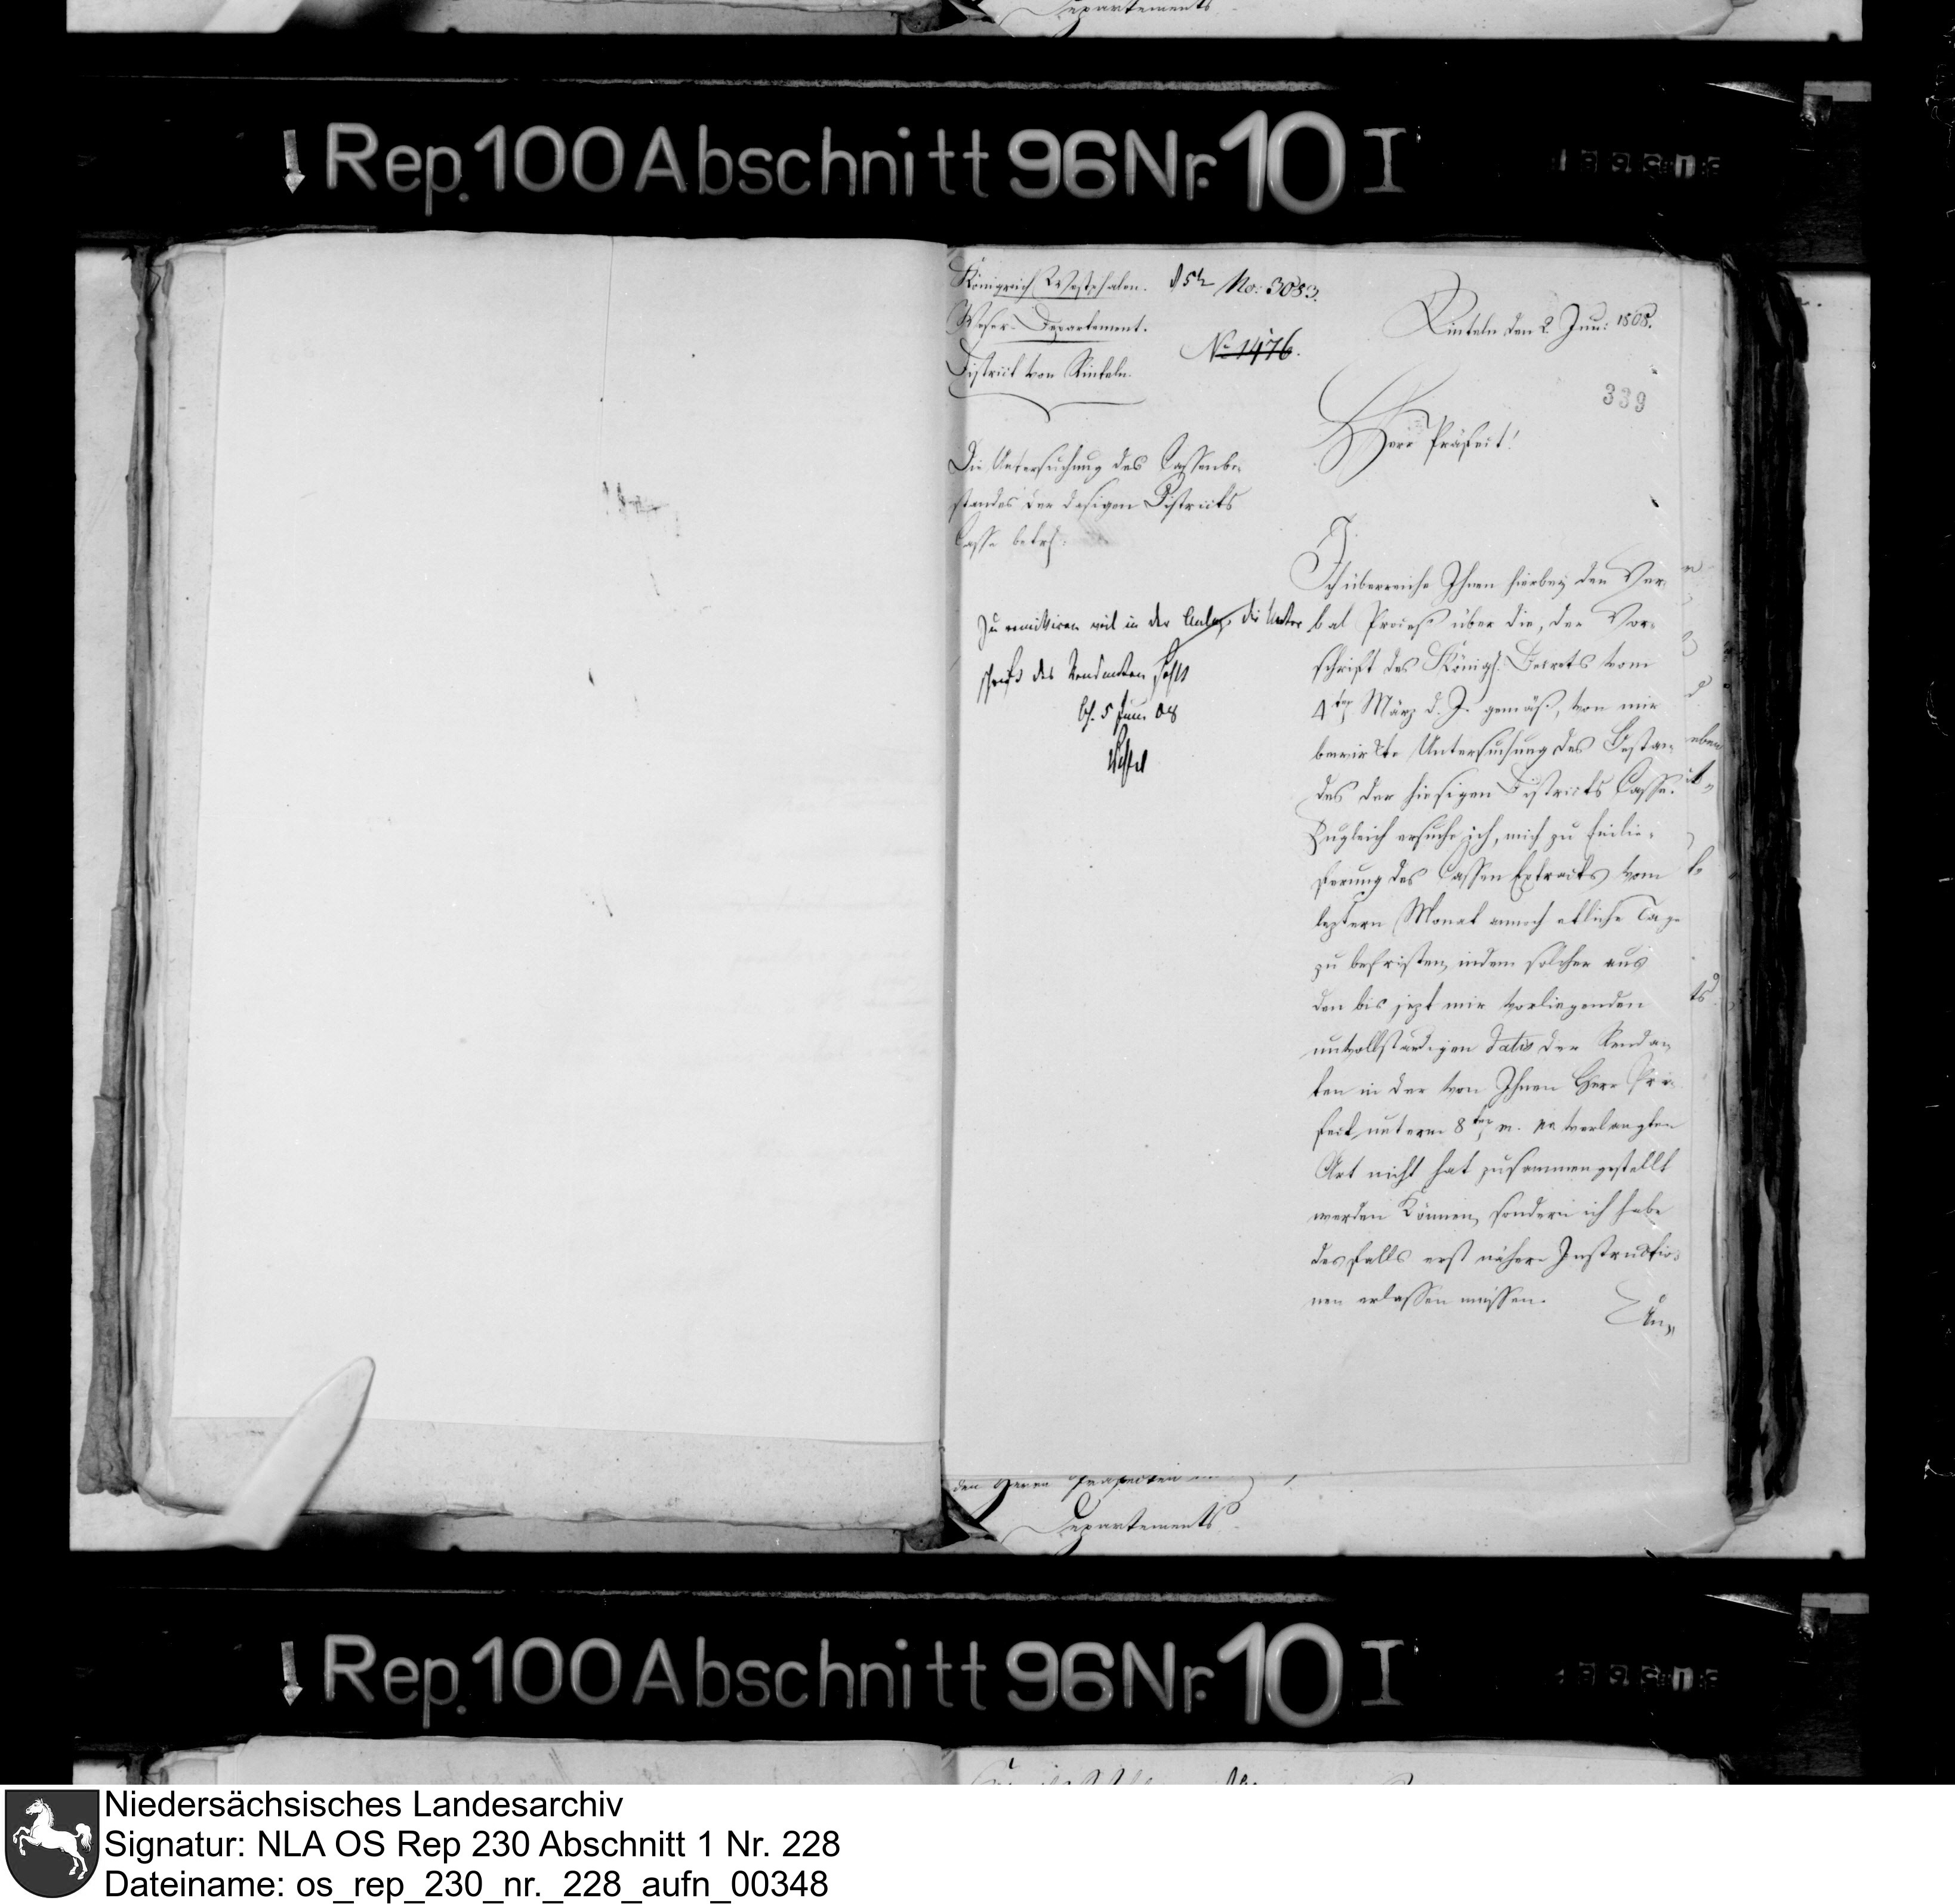 Departements
Rep. 100 Abschnitt 96 Nr. 10 I
Königreich Westphalen.
No: 3083.
Weser-Departement.
No 1476.
District von Rinteln.
Rinteln den 2. Jun: 1808.
339
Herr Präfect!
Die Untersuchung des Cassenbe-
standes der dasigen Districts
Casse betrf:
Zu remittiren weil in der Anlage die Unter
schrift des Rendanten fehlt
5 Jun. 08
Ich überreiche Ihnen hierbey den Ver-
bal Proceß über die, der Vor-
schrift des Königl. Decrets vom
4ten März d. J. gemäß, von mir
bewirkte Untersuchung des Bestan-
des der hiesigen Districts Casse.
Zugleich ersuche ich, mich zu Einlie-
ferung des Cassen Extracts vom
leztern Monat annoch etliche Tage
zu befristen, indem solcher aus
den bis jezt mir vorliegenden
unvollständigen Datis der Rendan-
ten in der von Ihnen Herr Prä-
fect unterm 8ten m. pr. verlangten
Art nicht hat zusammengestellt
werden können, sondern ich habe
desfalls erst nähere Instructio-
nen erlassen müssen.
den Herrn Praefecten
Departements
Rep. 100 Abschnitt 96 Nr. 10 I
Niedersächsisches Landesarchiv
Signatur: NLA OS Rep 230 Abschnitt 1 Nr. 228
Dateiname: os_rep_230_nr._228_aufn_00348